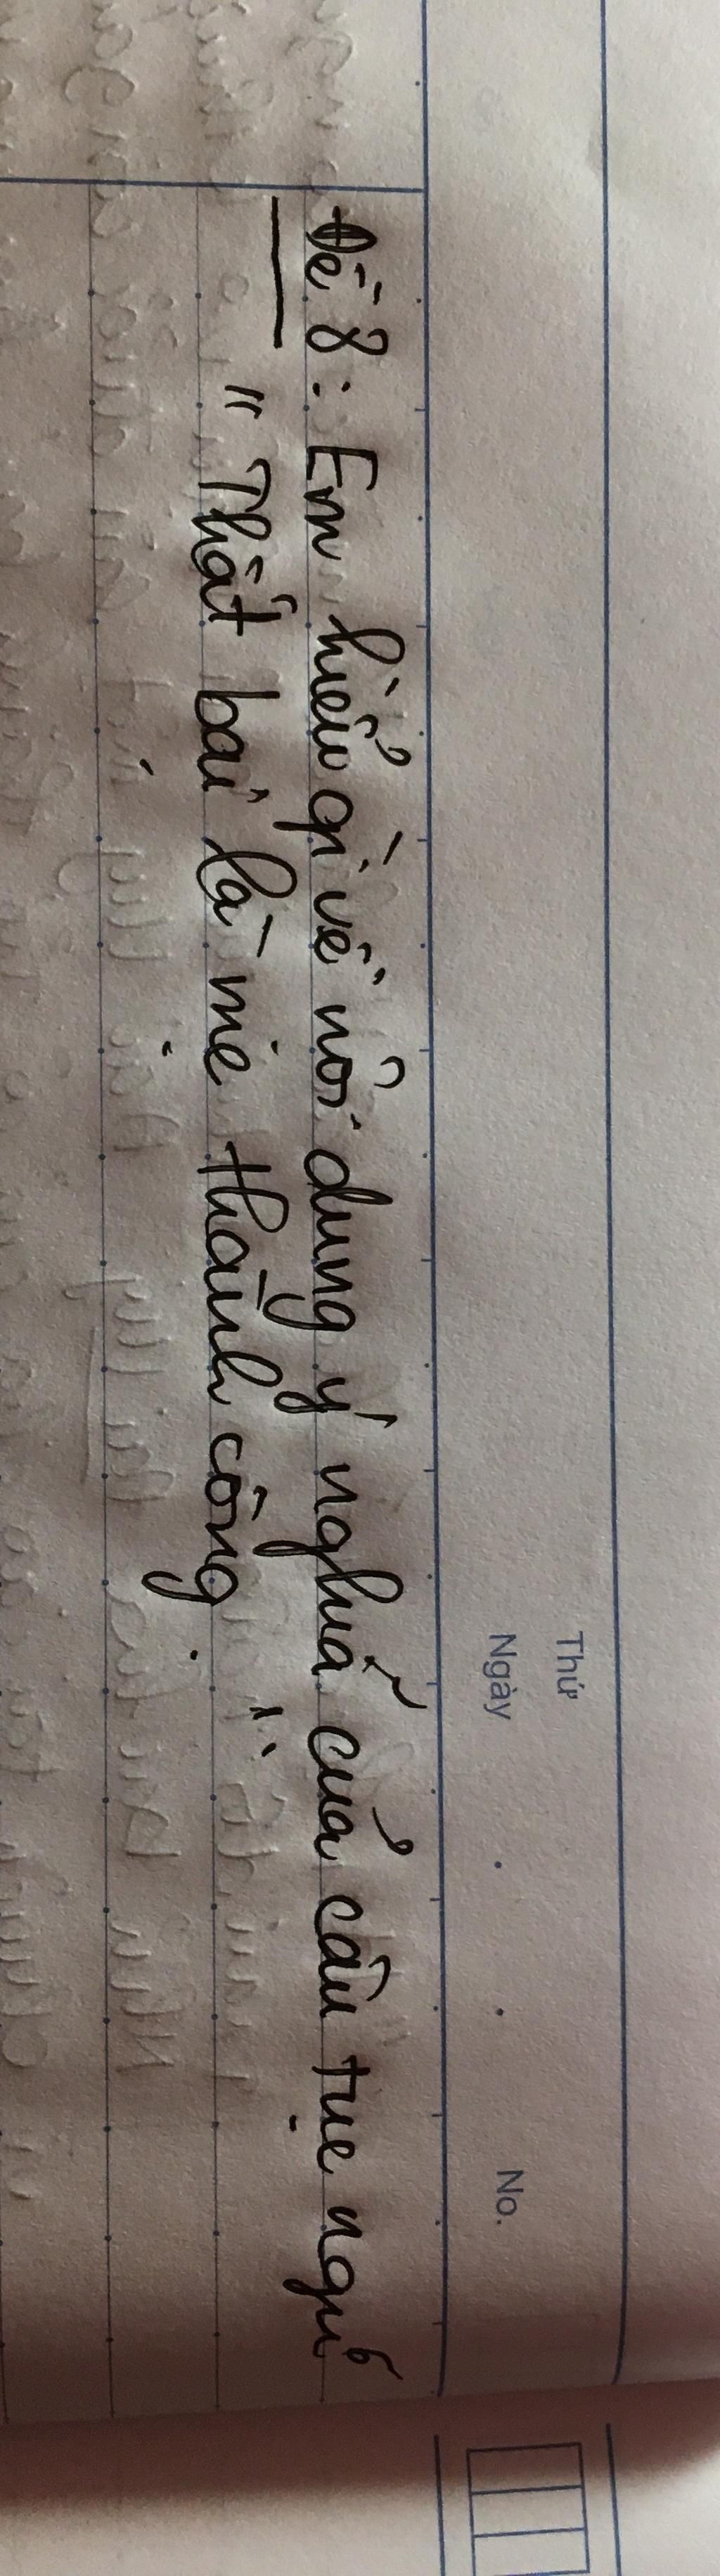 Thứ
Ngày No.
Đề 8: Em hiểu gì về nội dung ý nghĩa của câu tục ngữ
"Thất bại là mẹ thành công."